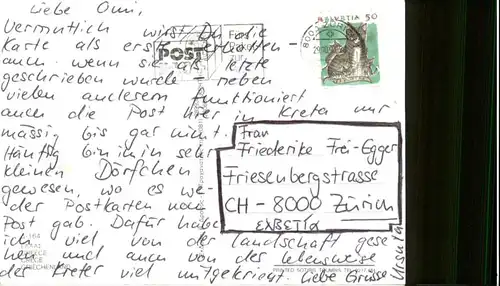 Liebe Omi,
Vermutlich wirst Du die
Karte als erste erhalten –
auch wenn sie als letzte
geschrieben wurde – neben
vielem anderem funktioniert
auch die Post hier in Kreta nur
mässig bis gar nicht.
Häufig bin ich in sehr
kleinen Dörfchen
gewesen, wo es we-
der Postkarten noch
Post gab. Dafür habe
ich viel von der Landschaft gese
hen und auch von der Lebensweise
der Kreter viel mitgekriegt. Liebe Grüsse
Ursula
Frau
Friederike Frei-Egger
Friesenbergstrasse
CH – 8000 Zürich
ΕΛΒΕΤΙΑ
HELVETIA 50
POST
164